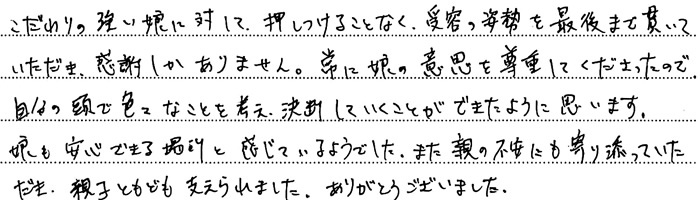 こだわりの強い娘に対して、押しつけることなく、受容の姿勢を最後まで貫いて
いただき、感謝しかありません。常に娘の意思を尊重してくださったので、
自分の頭で色々なことを考え、決断していくことができたように思います。
娘も安心できる場所と感じているようでした。また親の不安にも寄り添っていた
だき、親子ともども支えられました。ありがとうございました。